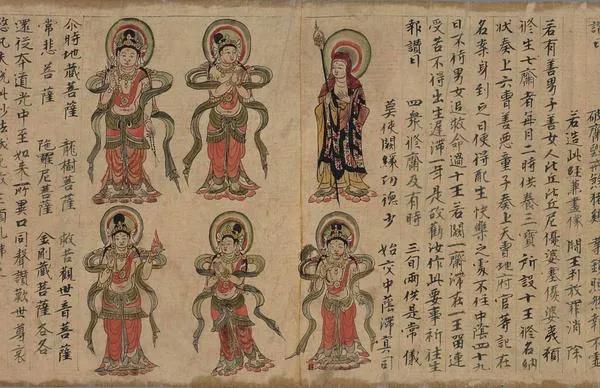 讚曰 破齋毀戒殺猪雞 業鏡照然報不虛
若造此經兼畫像 閻王判放罪消除
若有善男子善女人比丘比丘尼優婆塞優婆夷預
修生七齋者每月二時供養三寶所設十王修名納
状奏上六曹善惡童子奏上天曹地府官等記在
名案身到之日便得配生快樂之處不住中陰四十九
日不待男女追救命過十王若闕一齋滯在一王留連
受苦不得出生遲滯一年是故勸汝作此要事祈往生
報讚曰 四眾修齋及有時 三旬兩供是常儀
莫使闕緣功德少 始交中陰滯冥司
尒時地藏菩薩 龍樹菩薩 救苦觀世音菩薩
常悲菩薩 陁羅尼菩薩 金剛藏菩薩各各
還從本道光中至如來所異口同聲讚歎世尊哀